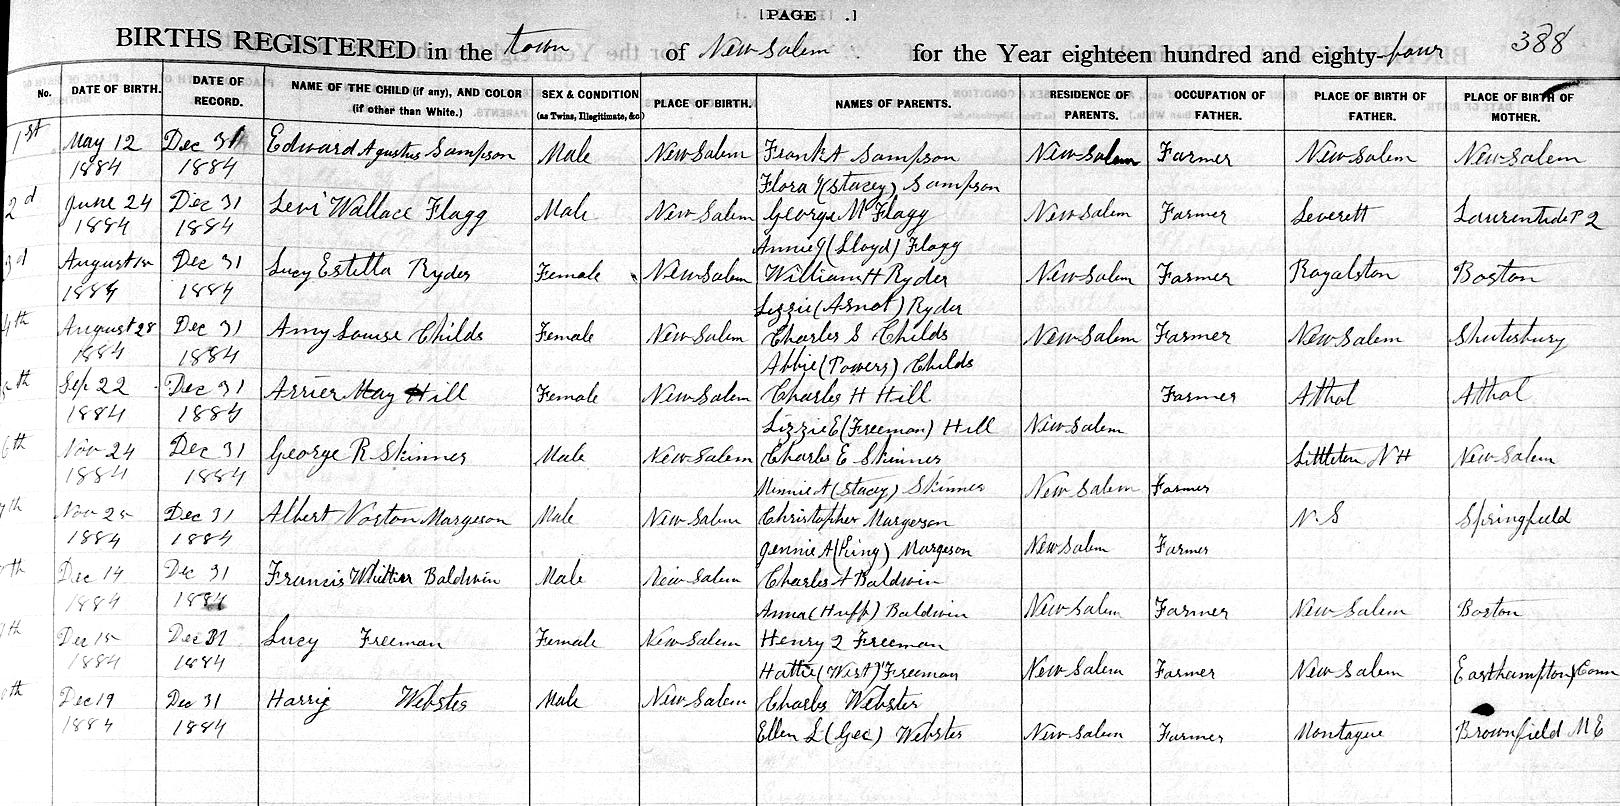 [PAGE .]
388
BIRTHS REGISTERED in the town of New Salem for the Year eighteen hundred and eighty-four
No. DATE OF BIRTH. DATE OF RECORD. NAME OF THE CHILD (if any), AND COLOR (if other than White.) SEX & CONDITION (as Twins, Illegitimate, &c.) PLACE OF BIRTH. NAMES OF PARENTS. RESIDENCE OF PARENTS. OCCUPATION OF FATHER. PLACE OF BIRTH OF FATHER. PLACE OF BIRTH OF MOTHER.
1st May 12 Dec 31 Edward Agustus Sampson Male New Salem Frank A Sampson New Salem Farmer New Salem New Salem
1884 1884 Flora (Stacey) Sampson
2d June 24 Dec 31 Levi Wallace Flagg Male New Salem George M Flagg New Salem Farmer Leverett
1884 1884 Annie J (Lloyd) Flagg
3d August Dec 31 Lucy Estella Ryder Female New Salem William H Ryder New Salem Farmer Royalston Boston
1884 1884 Lizzie (Arnot) Ryder
4th August 28 Dec 31 Amy Louise Childs Female New Salem Charles S Childs New Salem Farmer New Salem Shutesbury
1884 1884 Abbie (Powers) Childs
5th Sep 22 Dec 31 May Hill Female New Salem Charles H Hill Farmer Athol Athol
1884 1884 Lizzie E (Freeman) Hill New Salem
6th Nov 24 Dec 31 George R Skinner Male New Salem Charles E Skinner Littleton NH New Salem
1884 1884 Minnie A (Stacey) Skinner New Salem Farmer
7th Nov 25 Dec 31 Albert Margeson Male New Salem Christopher Margeson N.S Springfield
1884 1884 Jennie A (King) Margeson New Salem Farmer
8th Dec 14 Dec 31 Francis Whittier Baldwin Male New Salem Charles A Baldwin
1884 1884 Anna (Huff) Baldwin New Salem Farmer New Salem Boston
9th Dec 15 Dec 31 Lucy Freeman Female New Salem Henry Freeman
1884 1884 Hattie (West) Freeman New Salem Farmer New Salem Easthampton Conn
10th Dec 19 Dec 31 Harris Webster Male New Salem Charles Webster
1884 1884 Ellen L (Gee) Webster New Salem Farmer Montague Brownfield ME